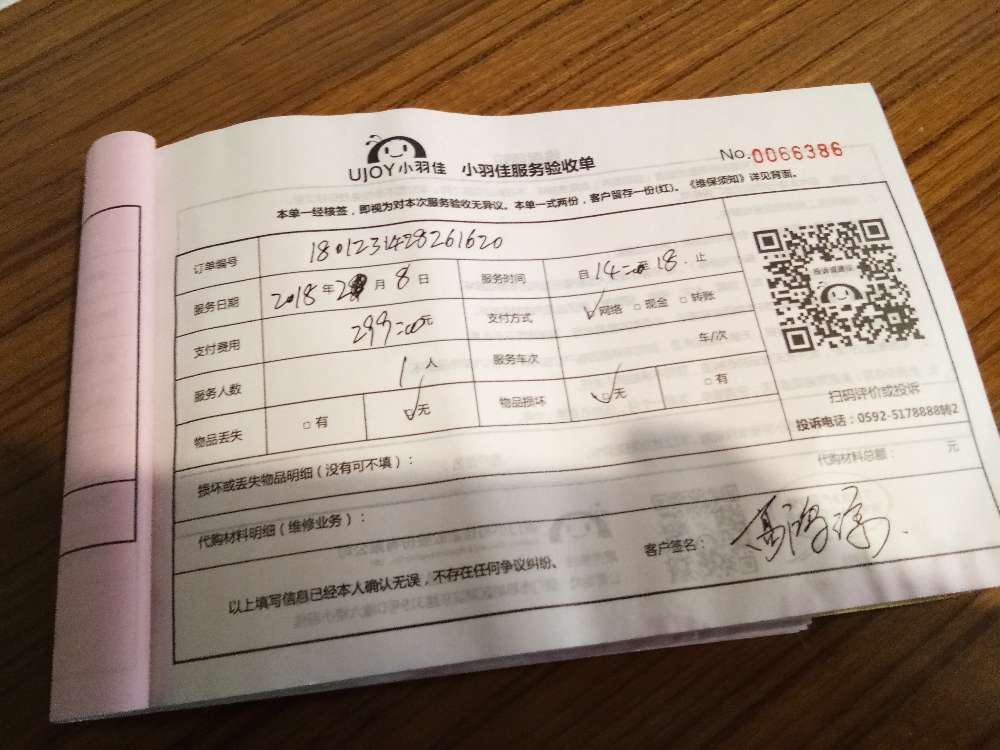 UJOY小羽佳 小羽佳服务验收单 No.0066386
本单一经核签，即视为对本次服务验收无异议。本单一式两份，客户留存一份(红)。《维保须知》详见背面。
订单编号 1801231428261620
服务日期 2018年2月8日 服务时间 自14:00至18.止
支付费用 299=00元 支付方式 网络 现金 转账
服务人数 1人 服务车次 车/次
物品丢失 有 无 物品损坏 无 有
投诉或建议
扫码评价或投诉
投诉电话：0592-5178888转2
损坏或丢失物品明细（没有可不填）：
代购材料明细（维修业务）： 代购材料总额： 元
以上填写信息已经本人确认无误，不存在任何争议纠纷。 客户签名：